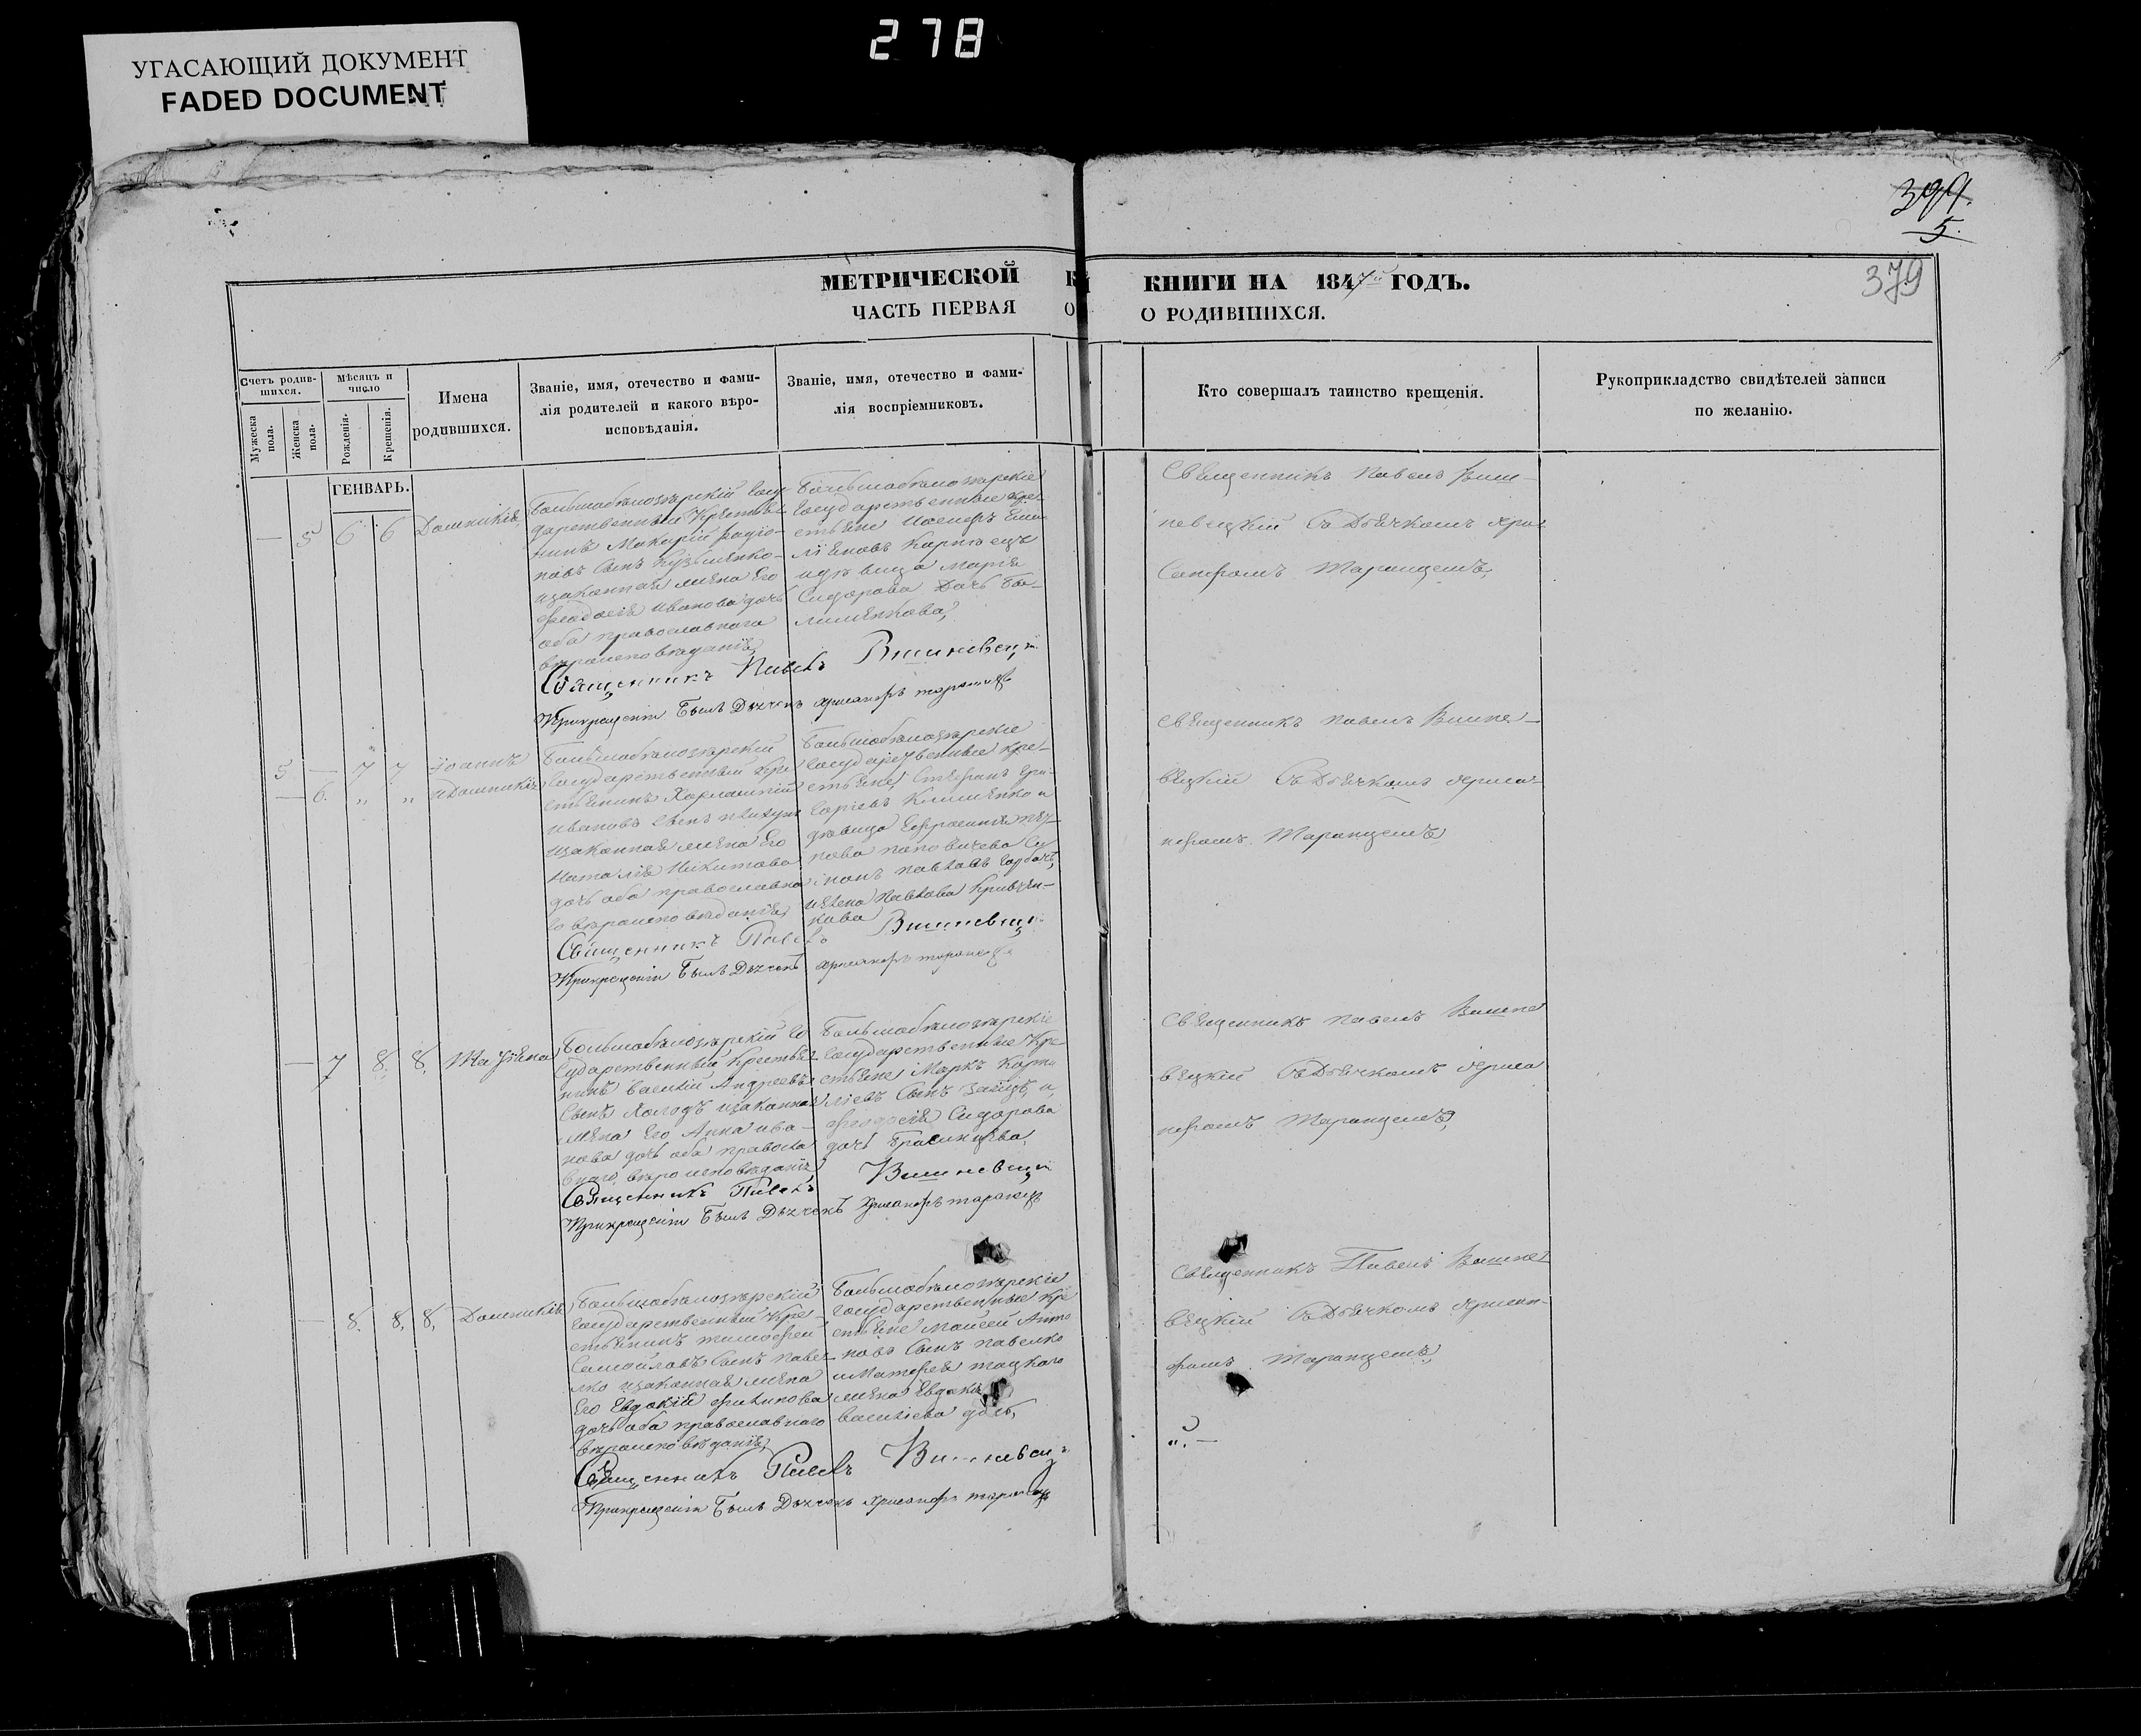 278
УГАСАЮЩИЙ ДОКУМЕНТ
FADED DOCUMENT
5.
379
МЕТРИЧЕСКОЙ КНИГИ НА 1847й ГОДЪ.
ЧАСТЬ ПЕРВАЯ О РОДИВШИХСЯ.
Счетъ родив-
шихся.
Мужеска пола.
Женска пола.
Мѣсяцъ и число
Рожденія.
Крещенія.
Имена
родившихся.
Званіе, имя, отечество и фами-
лія родителей и какого вѣро-
исповѣданія.
Званіе, имя, отечество и фами-
лія воспріемниковъ.
Кто совершалъ таинство крещенія.
Рукоприкладство свидѣтелей записи
по желанію.
ГЕНВАРЬ.
— 5 6 6 Домникія
Большобѣлозѣрскій Госу-
дарственный Крестья-
нинъ Макарій Родіо-
новъ Сынъ Кузьменко
изаконная жена Его
Феодосія Иванова дочь
оба православнаго
вѣроисповѣданія,
Большобѣлозѣрскіе
Государственные Кре-
стьяне Іосифъ Еми-
ліяновъ Карпець
идѣвица Марія
Сидорова Дочь
Священникъ Павелъ Виш-
невецкій съ Дьячкомъ Хри-
санфомъ Таранцемъ,
Священникъ Павелъ Вишневецкій
Прикрещеніи Былъ Дячекъ Хрисанфъ Таранецъ
5 — 7 7 Іоаннъ
— 6. „ „ иДомникія
Большобѣлозѣрскій
Государственный Кре-
стьянинъ Харлампій
Ивановъ Сынъ
изаконная жена Его
Наталія Никитова
дочь оба православна-
го вѣроисповѣданія,
Большобѣлозѣрскіе
Государственные Кре-
стьяне, Стефанъ Гри-
горіевъ Клименко и
дѣвица Ефросинія
Священникъ Павелъ Вишне-
вецкій съ Дьячкомъ Хриса-
нфомъ Таранцемъ,
Священникъ Павелъ Вишневецкій
Прикрещеніи Былъ Дячекъ Хрисанфъ Таранецъ
— 7 8. 8. Татіяна
Большобѣлозѣрскій Го-
сударственный Крестья-
нинъ Василій Андреевъ
Сынъ Холодъ изаконная
жена Его Анна Ива-
нова дочь оба правосла-
внаго вѣроисповѣданія
Большобѣлозѣрскіе
Государственные Кре-
стьяне Маркъ Корни-
ліевъ Сынъ Заяцъ, и,
Феодосія Сидорова
дочь
Священникъ Павелъ Вишне-
вецкій съ Дьячкомъ Хриса-
нфомъ Таранцемъ,
Священникъ Павелъ Вишневецкій
Прикрещеніи Былъ Дячекъ Хрисанфъ Таранецъ
— 8. 8. 8. Домникія
Большобѣлозѣрскій
Государственный Кре-
стьянинъ Тимофей
Самойловъ Сынъ Павел-
ко изаконная жена
Его Евдокія Филипова
дочь оба православнаго
вѣроисповѣданія,
Большобѣлозѣрскіе
Государственные Кре-
стьяне Моисей Анто-
новъ Сынъ Павелко
жена Евдокія
Василіева дочь,
Священникъ Павелъ Вишне-
вецкій съ Дьячкомъ Хрисан-
фомъ Таранцемъ,
Священникъ Павелъ Вишневецкій
Прикрещеніи Былъ Дячекъ Хрисанфъ Таранецъ